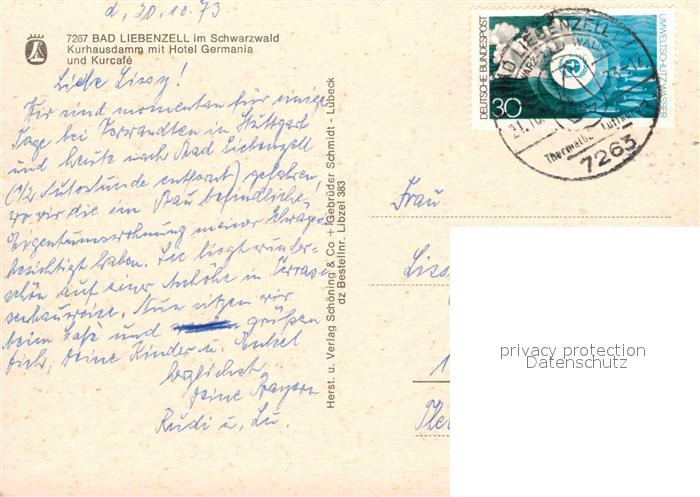 d. 20.10.73
7267 BAD LIEBENZELL im Schwarzwald
Kurhausdamm mit Hotel Germania
und Kurcafé
Liebe Lissy!
Wir sind momentan für einige
Tage bei Verwandten in Stuttgart
und heute nach Bad Liebenzell
(1/2 Autostunde entfernt) gefahren,
wo wir die im Bau befindliche
Eigentumswohnung meiner
besichtigt haben. Sie liegt wunder-
schön auf einer Anhöhe in Terras-
senbauweise. Nun sitzen wir
beim Café und grüßen
Dich, Deine Kinder u. Enkel
herzlichst
Deine
Rudi u. Lu.
Herst. u. Verlag Schöning & Co + Gebrüder Schmidt - Lübeck
dz Bestellnr. Libzel 383
DEUTSCHE BUNDESPOST
30
UMWELTSCHUTZ: WASSER
BAD LIEBENZELL
7263
Frau
Liss
privacy protection
Datenschutz